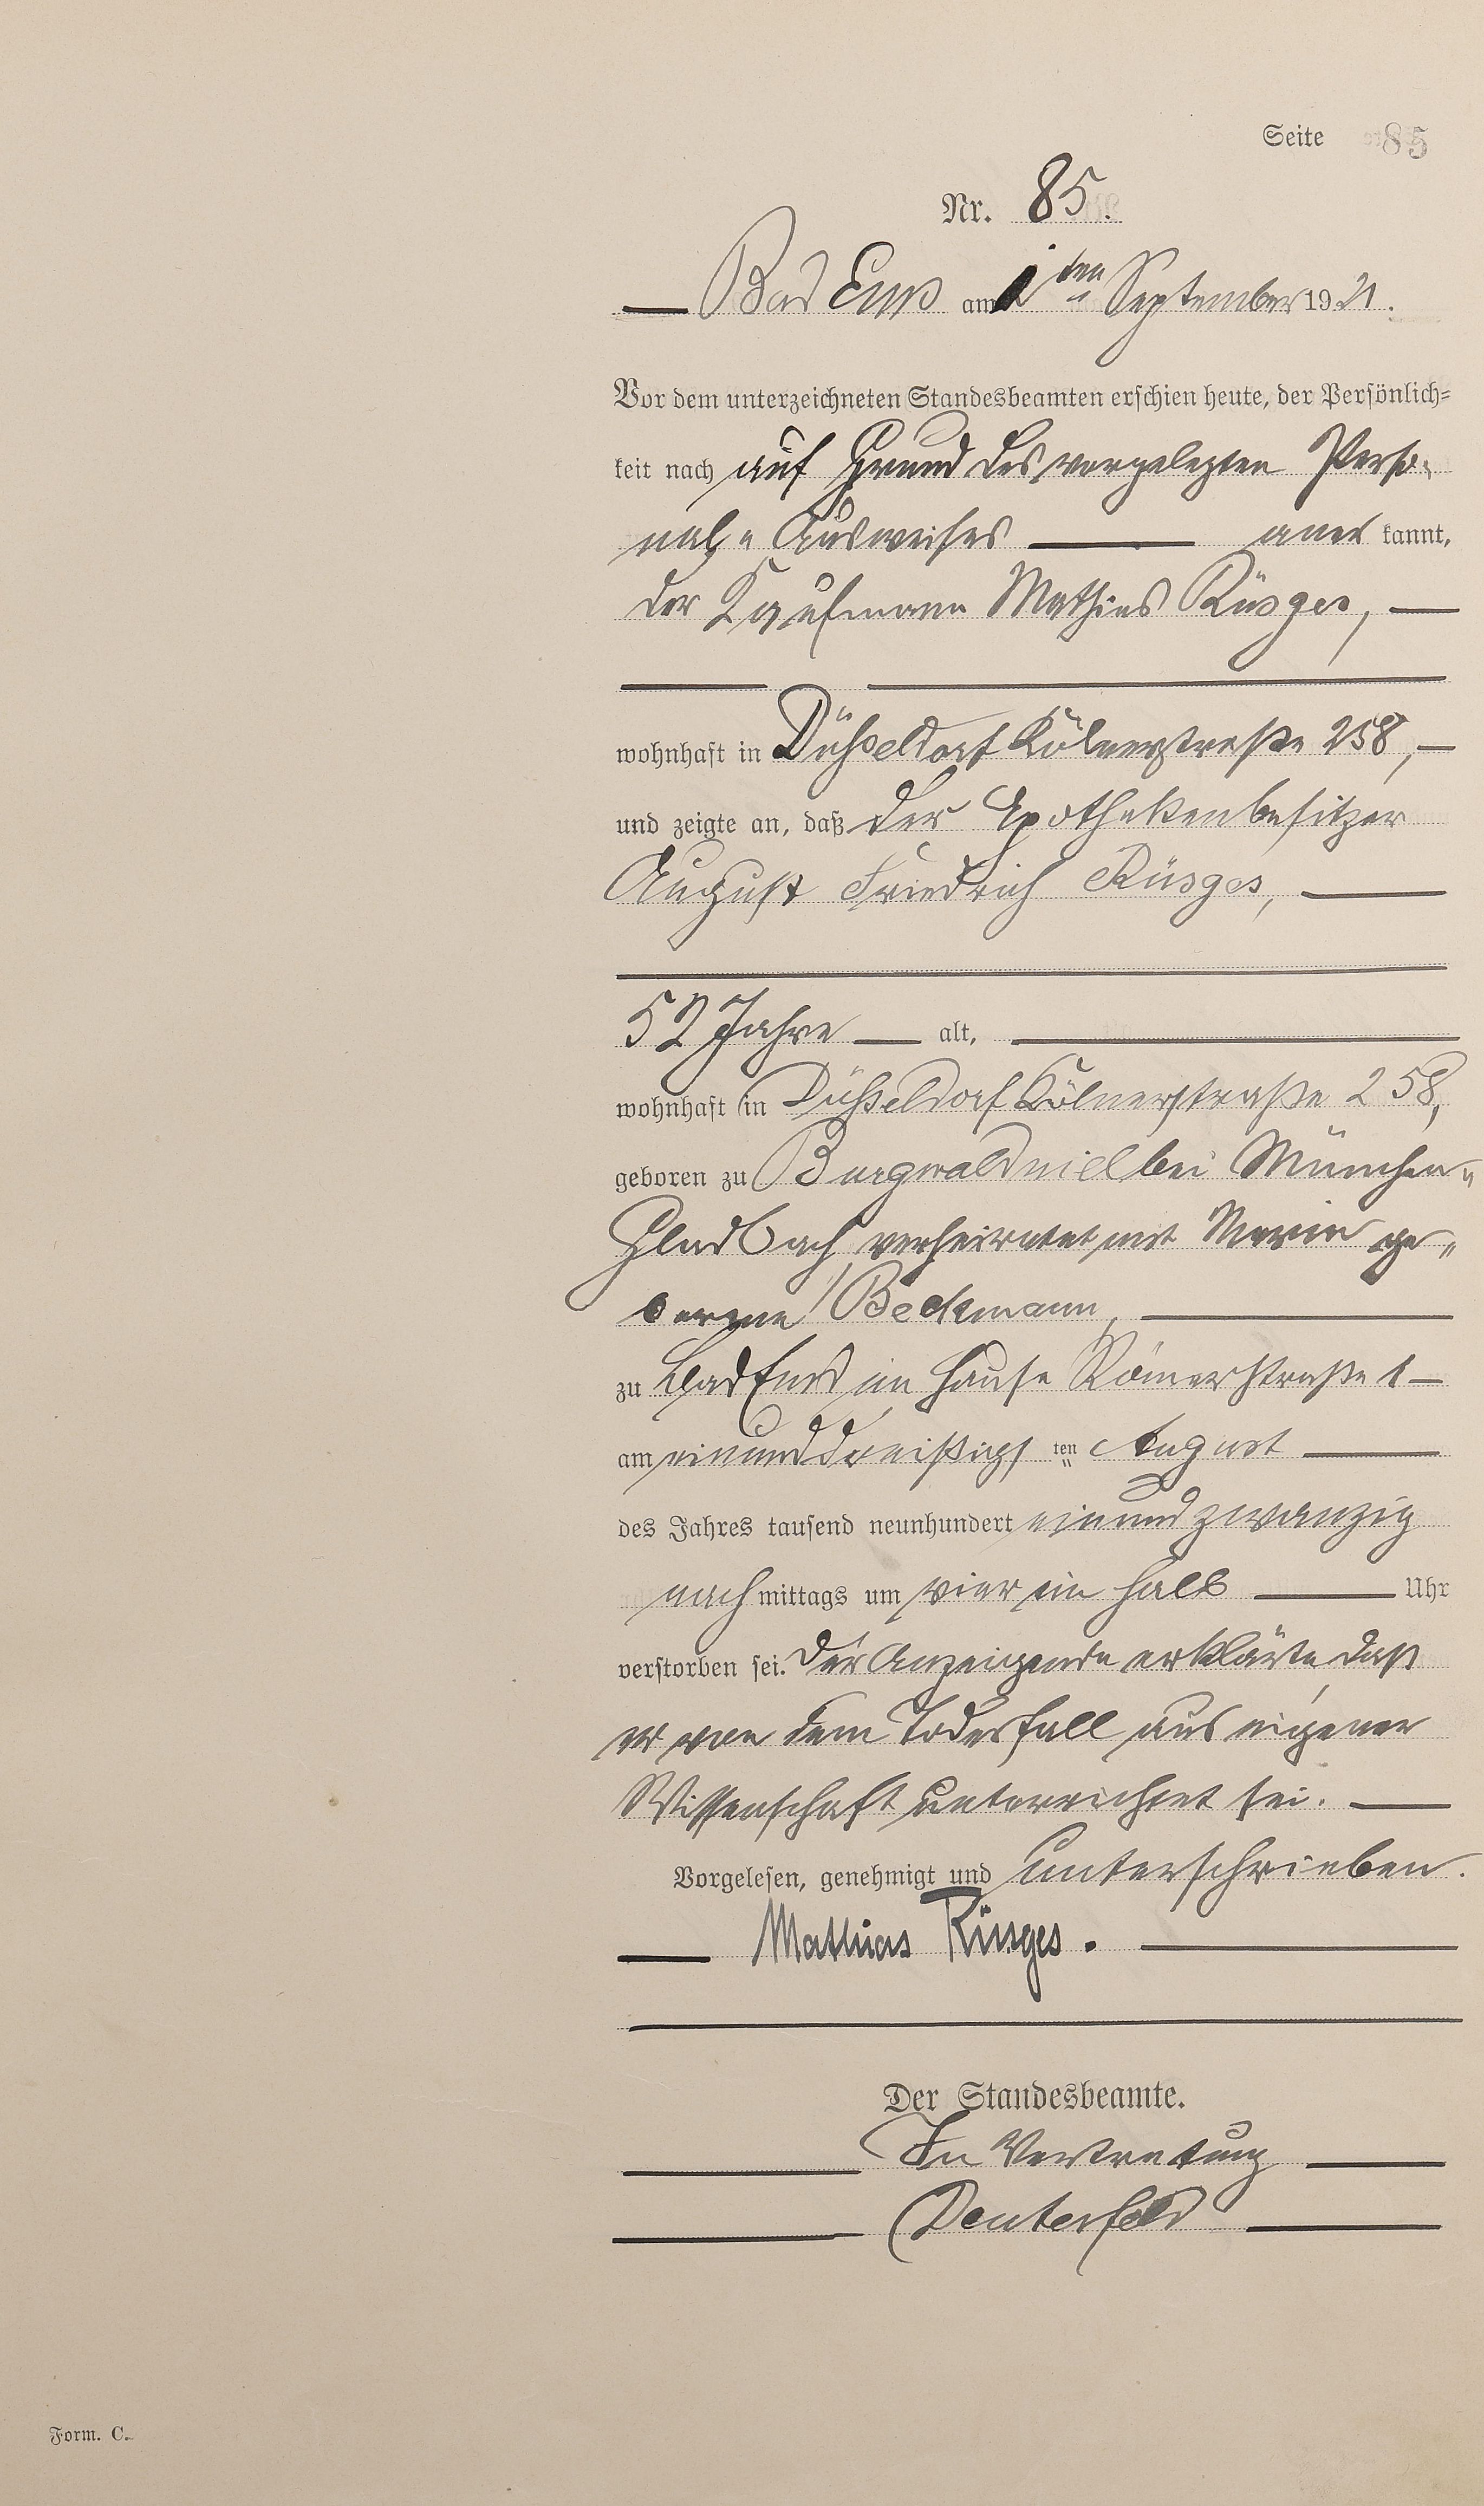 Seite 85
Nr. 85.
Bad Ems am 1ten September 1921.
Vor dem unterzeichneten Standesbeamten erschien heute, der Persönlich=
keit nach auf Grund des vorgelegten Perso-
nal= Ausweises aner kannt,
der Kaufmann Mathias Rüsges,
wohnhaft in Düsseldorf Kölnerstraße 258,
und zeigte an, daß der Apothekenbesitzer
August Friedrich Rüsges,
52 Jahre alt,
wohnhaft in Düsseldorf Kölnerstraße 258,
geboren zu Burgwaldniel bei München=
Gladbach, verheiratet mit Maria ge=
borene Beckmann,
zu Bad Ems im Hause Römerstraße 1
am einunddreißigs ten August
des Jahres tausend neunhundert einundzwanzig
nach mittags um vier ein halb Uhr
verstorben sei. Der Anzeigende erklärte, daß
er von dem Todesfall aus eigener
Wissenschaft unterrichtet sei.
Vorgelesen, genehmigt und unterschrieben.
Mathias Rüsges.
Der Standesbeamte.
In Vertretung
Form. C.